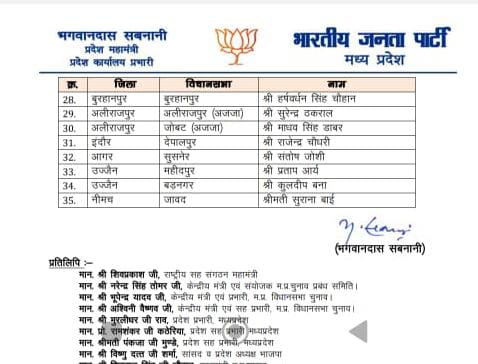 भगवानदास सबनानी
प्रदेश महामंत्री
प्रदेश कार्यालय प्रभारी
भारतीय जनता पार्टी
मध्य प्रदेश
क्र. जिला विधानसभा नाम
28. बुरहानपुर बुरहानपुर श्री हर्षवर्धन सिंह चौहान
29. अलीराजपुर अलीराजपुर (अजजा) श्री सुरेन्द्र ठकराल
30. अलीराजपुर जोबट (अजजा) श्री माधव सिंह डाबर
31. इंदौर देपालपुर श्री राजेन्द्र चौधरी
32. आगर सुसनेर श्री संतोष जोशी
33. उज्जैन महीदपुर श्री प्रताप आर्य
34. उज्जैन बड़नगर श्री कुलदीप बना
35. नीमच जावद श्रीमती सुराना बाई
(भगवानदास सबनानी)
प्रतिलिपि :–
मान. श्री शिवप्रकाश जी, राष्ट्रीय सह संगठन महामंत्री
मान. श्री नरेन्द्र सिंह तोमर जी, केन्द्रीय मंत्री एवं संयोजक म.प्र.चुनाव प्रबंध समिति।
मान. श्री भूपेन्द्र यादव जी, केन्द्रीय मंत्री एवं प्रभारी, म.प्र. विधानसभा चुनाव।
मान. श्री अश्विनी वैष्णव जी, केन्द्रीय मंत्री एवं सह प्रभारी, म.प्र. विधानसभा चुनाव।
मान. श्री मुरलीधर जी राव, प्रदेश प्रभारी, मध्यप्रदेश
मान. प्रो. रामशंकर जी कठेरिया, प्रदेश सह प्रभारी मध्यप्रदेश
मान. श्रीमती पंकजा जी मुण्डे, प्रदेश सह प्रभारी, मध्यप्रदेश
मान. श्री विष्णु दत्त जी शर्मा, सांसद व प्रदेश अध्यक्ष भाजपा